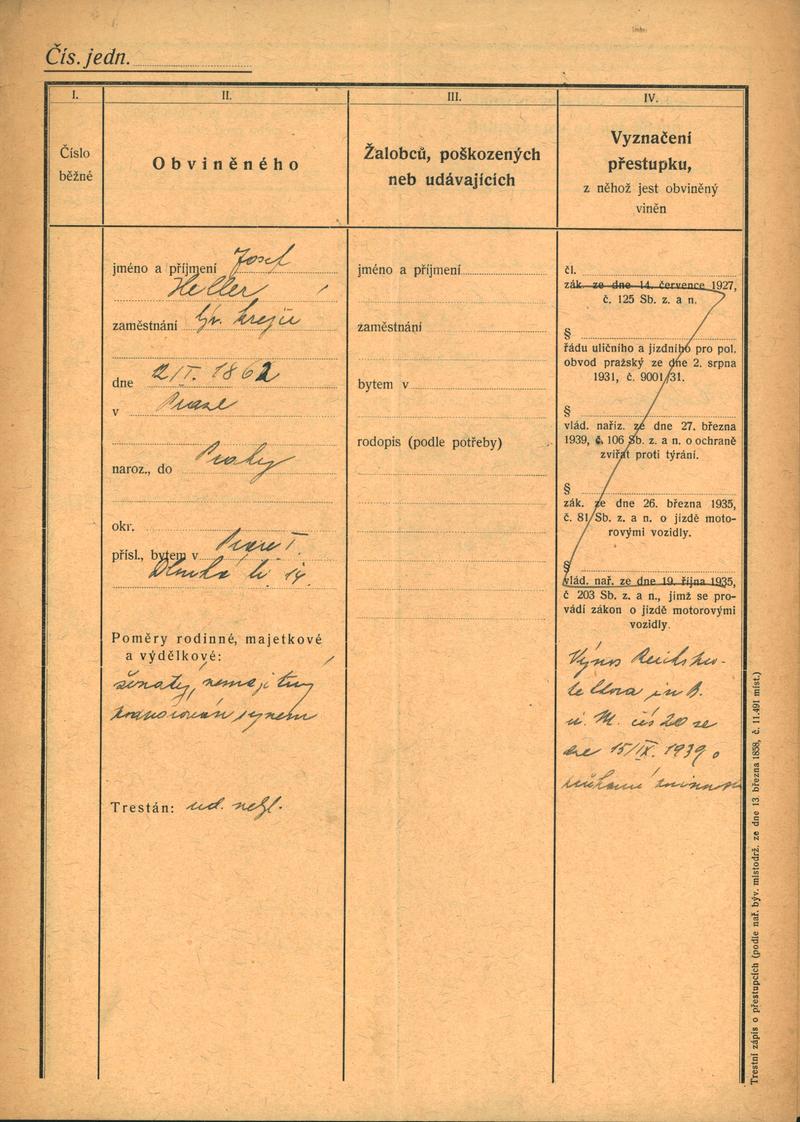 Čís. jedn.
I.
Číslo
běžné
II.
Obviněného
III.
Žalobců, poškozených
neb udávajících
IV.
Vyznačení
přestupku,
z něhož jest obviněný
viněn
jméno a příjmení Josef
Heller
zaměstnání býv. krejčí
dne 2/I. 1862
v Praze
naroz., do Prahy
okr.
přísl., bytem v Praze I.
Dlouhá tř. 14.
Poměry rodinné, majetkové
a výdělkové:
ženatý, nemajetný
synem
Trestán: ud. nebyl.
jméno a příjmení
zaměstnání
bytem v
rodopis (podle potřeby)
čl.
zák. ze dne 14. července 1927,
č. 125 Sb. z. a n.
§
řádu uličního a jízdního pro pol.
obvod pražský ze dne 2. srpna
1931, č. 9001/31.
§
vlád. naříz. ze dne 27. března
1939, č. 106 Sb. z. a n. o ochraně
zvířat proti týrání.
§
zák. ze dne 26. března 1935,
č. 81 Sb. z. a n. o jízdě moto-
rovými vozidly.
§
vlád. nař. ze dne 19. října 1935,
č 203 Sb. z. a n., jímž se pro-
vádí zákon o jízdě motorovými
vozidly.
Výnos Reichspro-
tektora in B.
u. M. čís 20 ze
dne 15/IX. 1939 o
Trestní zápis o přestupcích (podle nař. býv. místodrž. ze dne 13. března 1858, č. 11.491 míst.)